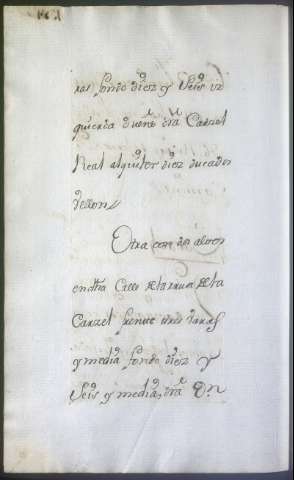 ras fondo diez y seis iz
quierda dueño dha Carzel
Real alquiler diez ducados
Vellon
Otra con dos altos
en dha Calle de la de la
Carzel frente tres varas
y media fondo diez y
Seis y media, dha Dn